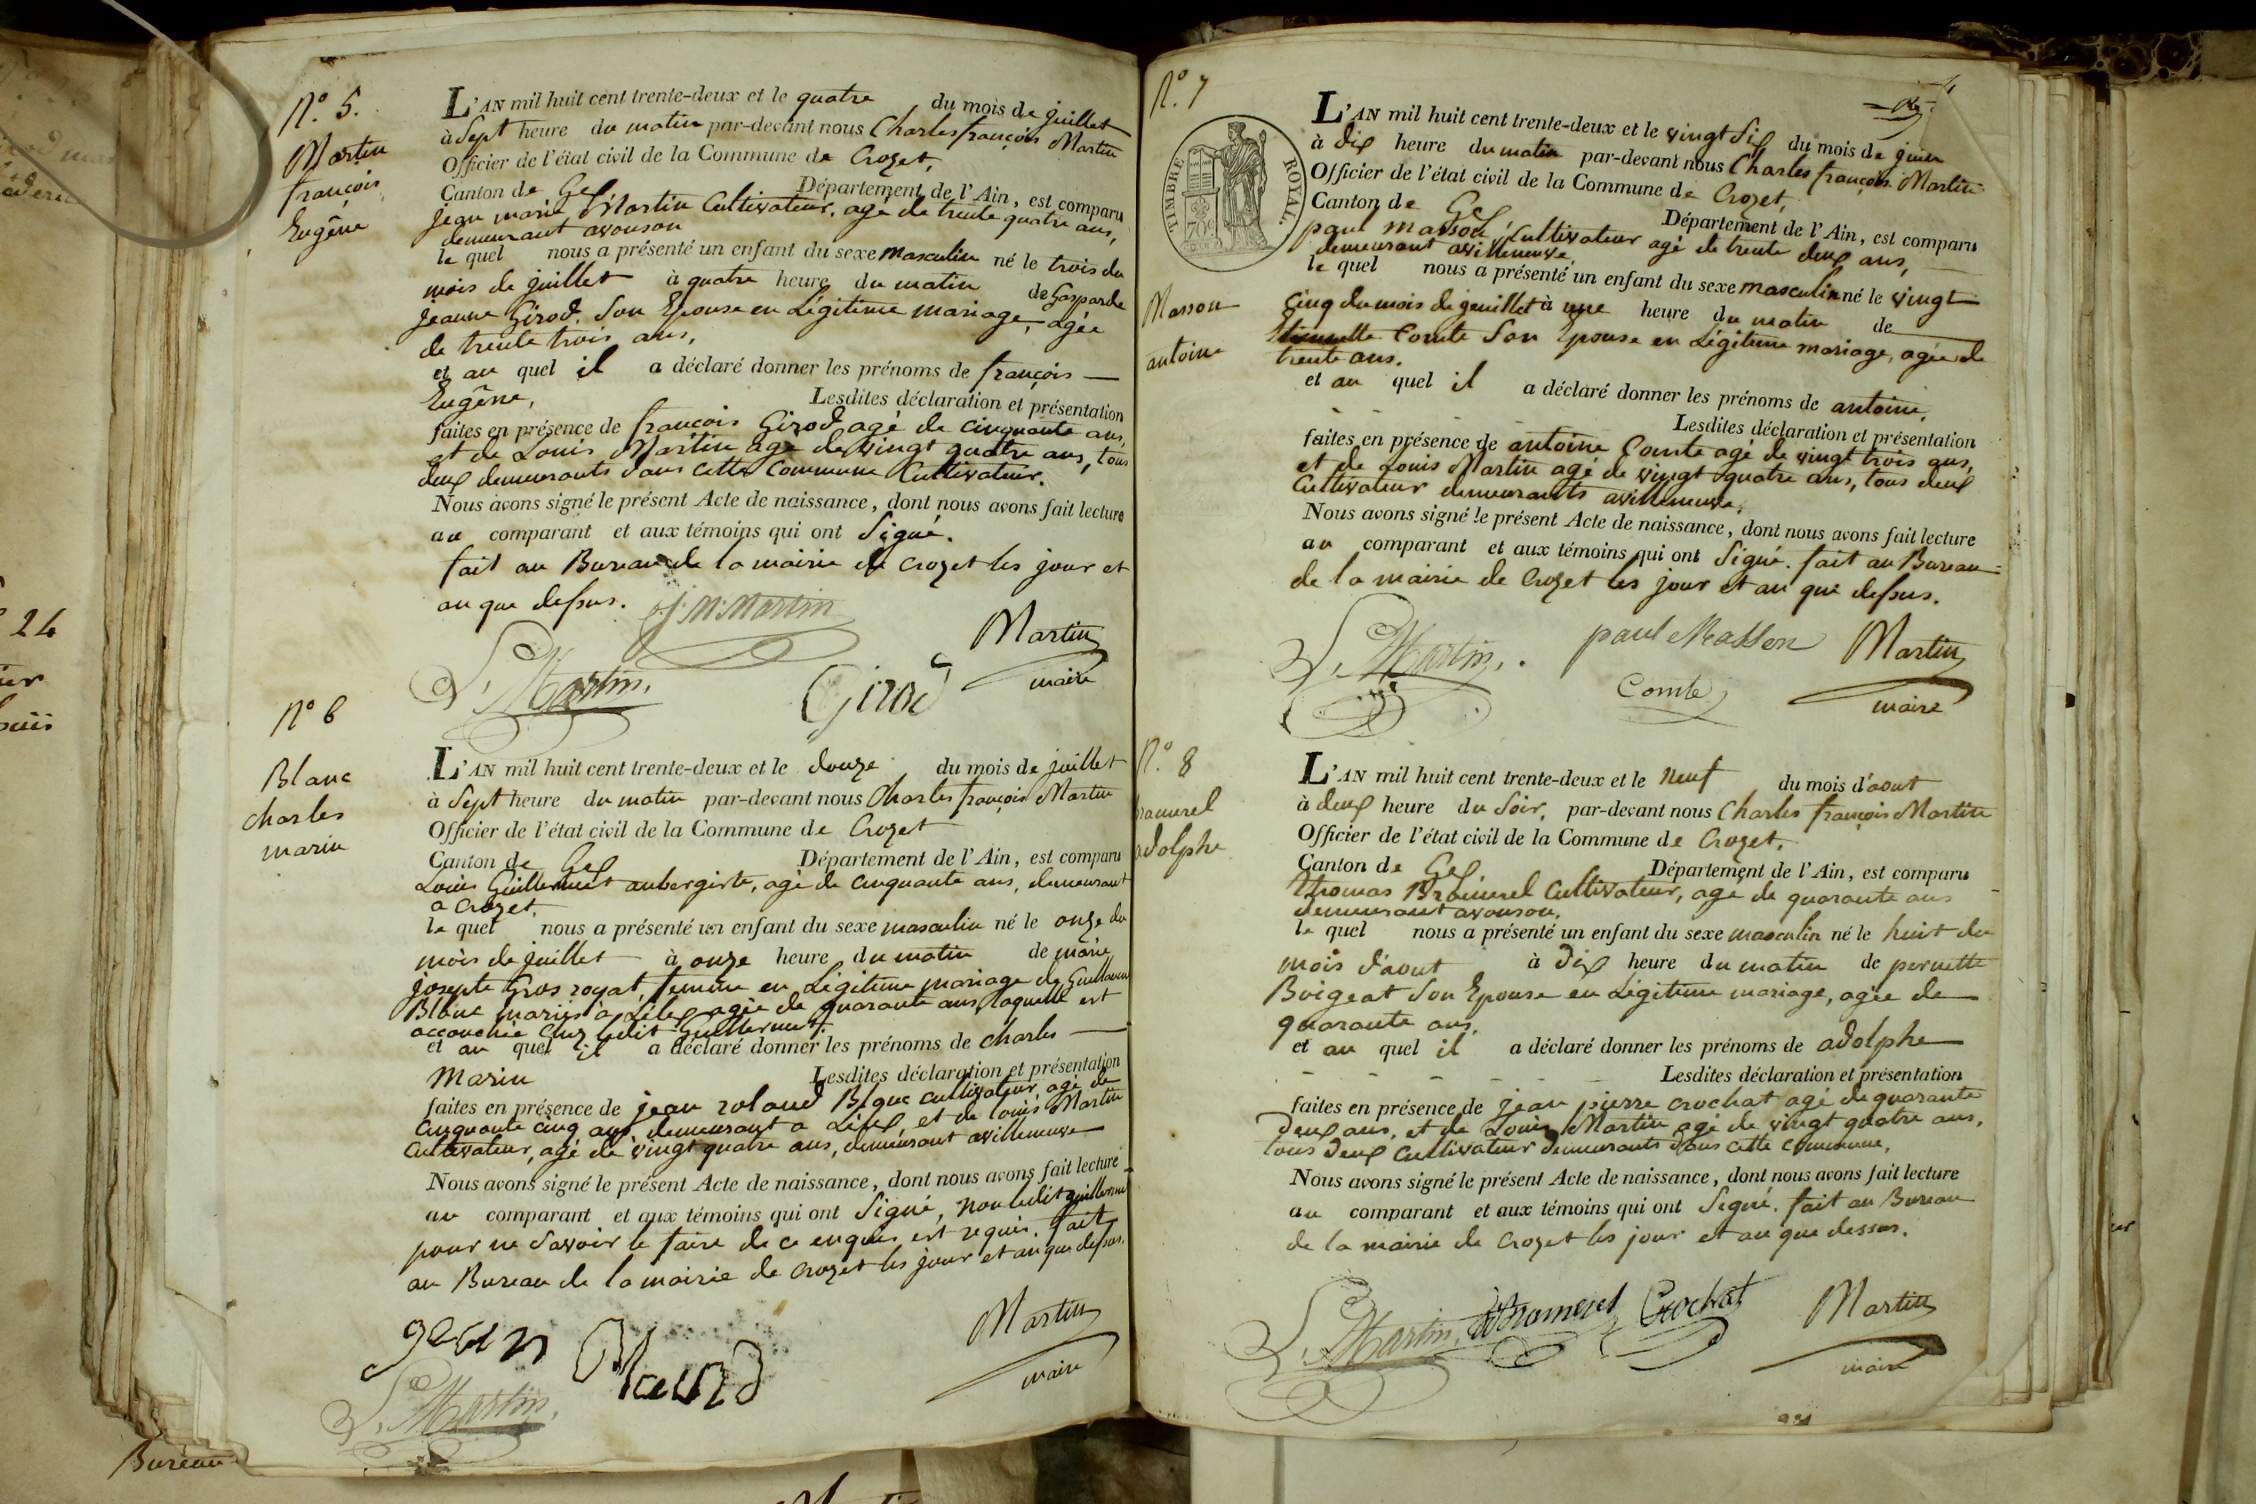 N.º 5.
Martin
françois
Eugêne
L'AN mil huit cent trente-deux et le quatre du mois de juillet
à Sept heure du matin par-devant nous Charles françois Martin
Officier de l'état civil de la Commune de Crozet,
Canton de Gex Département de l'Ain, est comparu
jean marie Martin Cultivateur, agé de trente quatre ans,
demeurant avouson
le quel nous a présenté un enfant du sexe masculin né le trois du
mois de juillet à quatre heure du matin de Gasparde
jeanne Girod, Son Epouse en Légitime mariage, agée
de trente trois ans,
et au quel il a déclaré donner les prénoms de françois
Eugêne, Lesdites déclaration et présentation
faites en présence de françois Girod agé de cinquante ans,
et de Louis Martin agé de vingt quatre ans, tous
deux demeurants dans cette commune Cultivateur.
Nous avons signé le présent Acte de naissance, dont nous avons fait lecture
au comparant et aux témoins qui ont Signé.
fait au Bureau de la mairie de Crozet les jour et
an que dessus. J. M. Martin
Martin
maire
L. Martin. Girod
Nº 6
Blanc
charles
marin
L'AN mil huit cent trente-deux et le douze du mois de juillet
à Sept heure du matin par-devant nous Charles françois Martin
Officier de l'état civil de la Commune de Crozet
Canton de Gex Département de l'Ain, est comparu
Louis Guillermet aubergiste, agé de cinquante ans, demeurant
a Crozet.
le quel nous a présenté un enfant du sexe masculin né le onze du
mois de juillet à onze heure du matin de marie
josepte Gros royat, femme en Légitime mariage de Guillaume
Blanc mariés a Lélex agée de quarante ans, laquelle est
accouchée chez ledit Guillermet.
et au quel il a déclaré donner les prénoms de charles
Marin Lesdites déclaration et présentation
faites en présence de jean roland Blanc cultivateur agé de
cinquante cinq ans demeurant a Lélex, et de louis Martin
Cultivateur, agé de vingt quatre ans, demeurant avilleneuve
Nous avons signé le présent Acte de naissance, dont nous avons fait lecture
au comparant et aux témoins qui ont Signé, non ledit guillermet
pour ne Savoir le faire de ce enquis est requis. fait
au Bureau de la mairie de Crozet les jour et an que dessus.
Martin
maire
jean
L. Martin.
N.º 7
TIMBRE ROYAL.
70c
Masson
antoine
L'AN mil huit cent trente-deux et le vingt Six du mois de
à dix heure du matin par-devant nous Charles françois Martin
Officier de l'état civil de la Commune de Crozet,
Canton de Gex Département de l'Ain, est comparu
paul masson, Cultivateur agé de trente deux ans,
demeurant avilleneuve
le quel nous a présenté un enfant du sexe masculin né le vingt
Cinq du mois de jeuillet à une heure du matin de
Comte Son Epouse en Légitime mariage, agée de
trente ans.
et au quel il a déclaré donner les prénoms de antoine,
Lesdites déclaration et présentation
faites en présence de antoine Comte agé de vingt trois ans,
et de Louis Martin agé de vingt quatre ans, tous deux
Cultivateur demeurants avilleneuve.
Nous avons signé le présent Acte de naissance, dont nous avons fait lecture
au comparant et aux témoins qui ont Signé. fait au Bureau
de la mairie de Crozet les jour et an que dessus.
L. Martin. paul Masson Martin
Comte maire
N.º 8
adolphe
L'AN mil huit cent trente-deux et le neuf du mois d'aout
à deux heure du Soir, par-devant nous Charles françois Martin
Officier de l'état civil de la Commune de Crozet.
Canton de Gex Département de l'Ain, est comparu
Thomas Bramerel Cultivateur, agé de quarante ans
demeurant avouson.
le quel nous a présenté un enfant du sexe masculin né le huit du
mois d'aout à dix heure du matin de pernette
Boigeat Son Epouse en Légitime mariage, agée de
quarante ans.
et au quel il a déclaré donner les prénoms de adolphe
Lesdites déclaration et présentation
faites en présence de jean pierre crochat agé de quarante
Deux ans, et de Louis Martin agé de vingt quatre ans,
tous deux cultivateur demeurants dans cette commune,
Nous avons signé le présent Acte de naissance, dont nous avons fait lecture
au comparant et aux témoins qui ont Signé. fait au Bureau
de la mairie de Crozet les jour et an que dessus.
L. Martin. Bramerel Crochat Martin
maire
24
Bureau